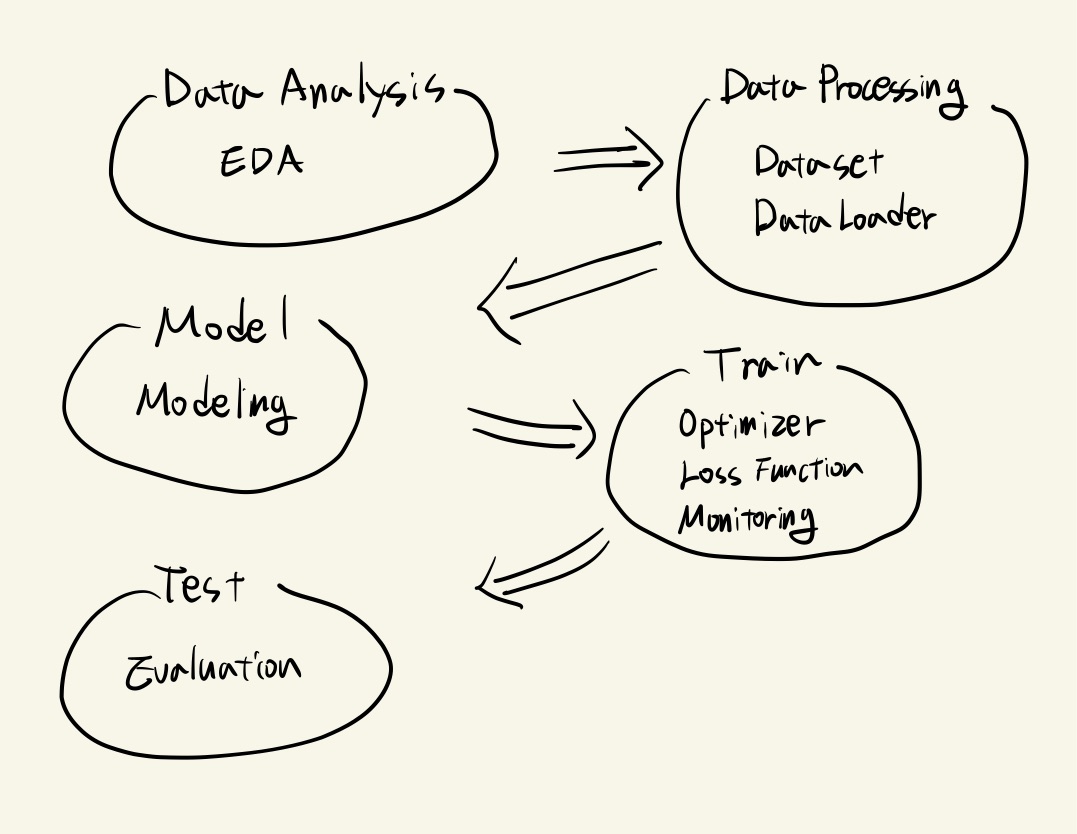 Data Analysis
EDA
Data Processing
Dataset
DataLoader
Model
Modeling
Train
Optimizer
Loss Function
Monitoring
Test
Evaluation